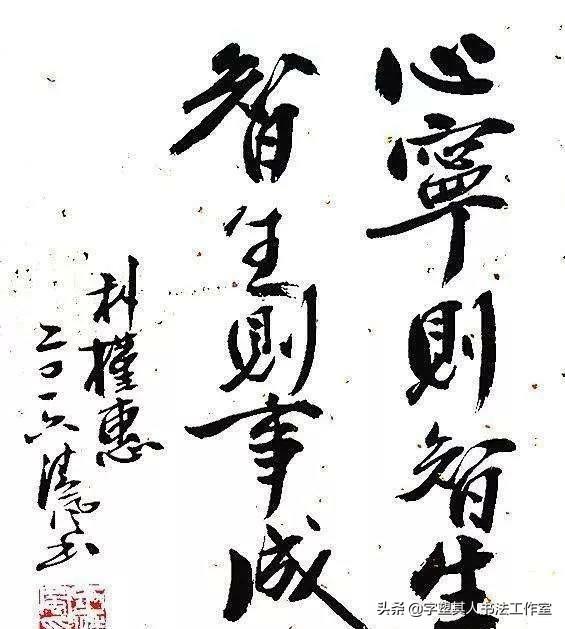 心寧則智生
智生則事成
朴槿惠
二〇一六
头条 @字塑其人书法工作室